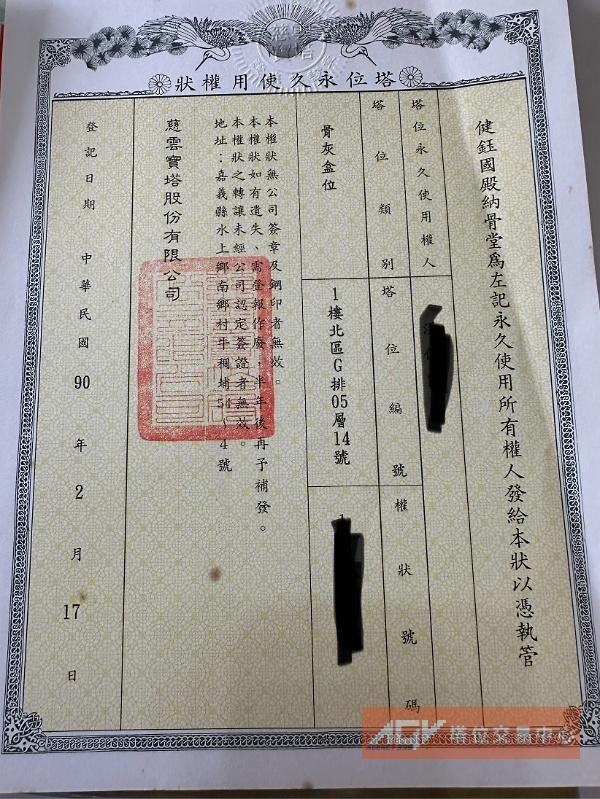 塔位永久使用權狀
健鈺國殿納骨堂為左記永久使用所有權人發給本狀以憑執管
塔位永久使用權人
塔位類別
塔位編號
權狀號碼
骨灰盒位
1樓北區G排05層14號
本權狀無公司簽章及鋼印者無效。
本權狀如有遺失、需登報作廢，半年後再予補發。
本權狀之轉讓未經公司認定簽證者無效。
地址：嘉義縣水上鄉南鄉村牛稠埔5
4號
慈雲寶塔股份有限公司
登記日期 中華民國 90 年 2 月 17 日
AGY 塔位交易中心